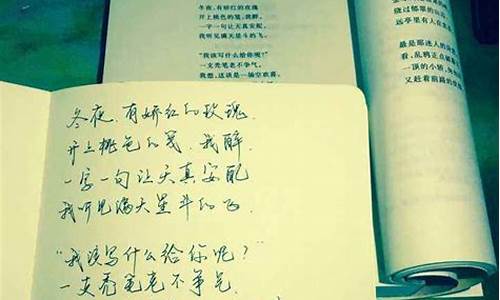 冬夜，有娇红的玫瑰
开上桃色的笺，我醉。
一字一句让天真安配，
我听见满天星斗的飞。
“我该写什么给你呢？”
一支秃笔老不争气。
我想，这该是一场空欢喜，
绕过
的山
远亭里有人在
最是那迷人的
看，乱鸦正点破
一顶的小轿，
又赶着前路的
冬夜，有娇红的玫瑰.
开上桃色的笺.我醉.
一字一句让天真安配
我听见满天星斗的飞.
“我该写什么给你呢？”
一支秃笔老不争气.